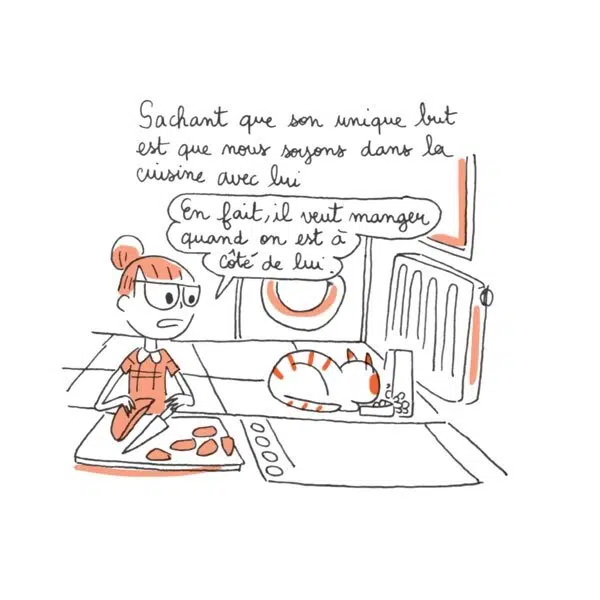 Sachant que son unique but
est que nous soyons dans la
cuisine avec lui
En fait, il veut manger
quand on est à
côté de lui.